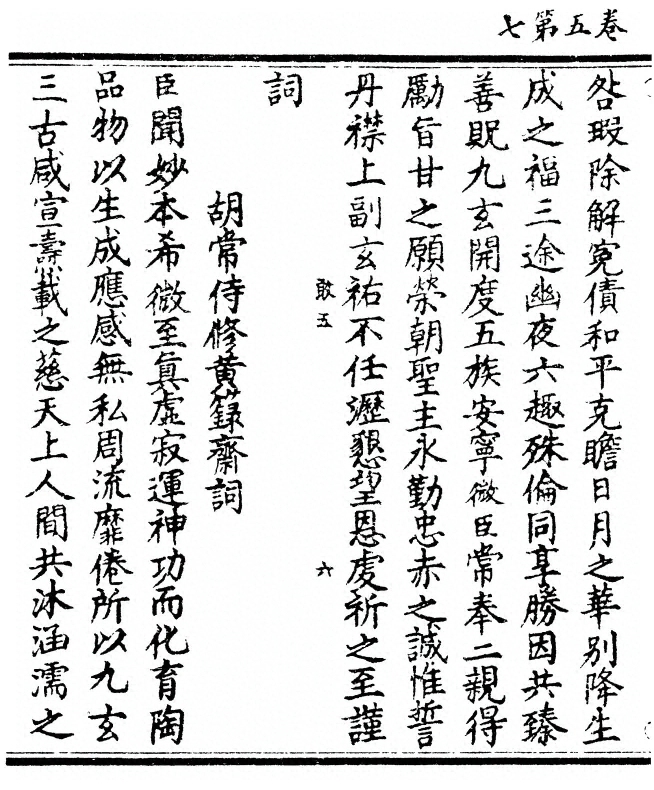 卷五第七
咎瑕除解冤債和平克瞻日月之華別降生
成之福三途幽夜六趣殊倫同享勝因共臻
善貺九玄開度五族安寧微臣常奉二親得
勵旨甘之願榮朝聖主永勤忠赤之誠惟誓
丹襟上副玄祐不任瀝懇望恩虔祈之至謹
敢五
六
詞
胡常侍修黃籙齋詞
臣聞妙本希微至真虛寂運神功而化育陶
品物以生成應感無私周流靡倦所以九玄
三古咸宣壽載之慈天上人間共沐涵濡之